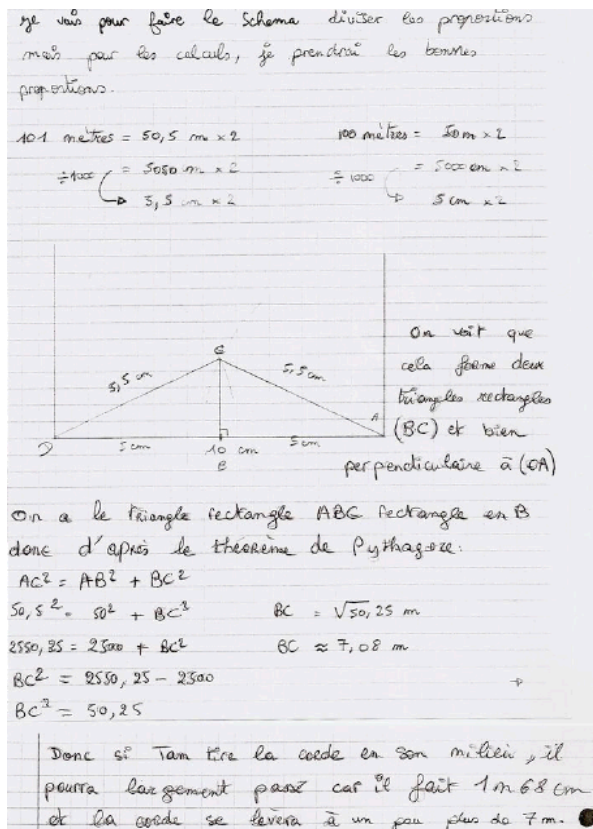 je vais pour faire le schema diviser les proportions
mais pour les calculs, je prendrai les bonnes
proportions.
101 mètres = 50,5 m × 2
100 mètres = 50 m × 2
÷1000
= 5050 cm × 2
÷ 1000
= 5000 cm × 2
5,5 cm × 2
5 cm × 2
C
5,5 cm
5,5 cm
D
5 cm
10 cm
5 cm
A
B
On voit que
cela forme deux
triangles rectangles
(BC) et bien
perpendiculaire à (DA)
On a le triangle rectangle ABC rectangle en B
donc d'après le théorème de Pythagore:
AC² = AB² + BC²
50,5² = 50² + BC²
BC = √50,25 m
2550,25 = 2500 + BC²
BC ≈ 7,08 m
BC² = 2550,25 - 2500
BC² = 50,25
Donc si Tam tire la corde en son milieu, il
pourra largement passé car il fait 1m68 cm
et la corde se lèvera à un peu plus de 7 m.